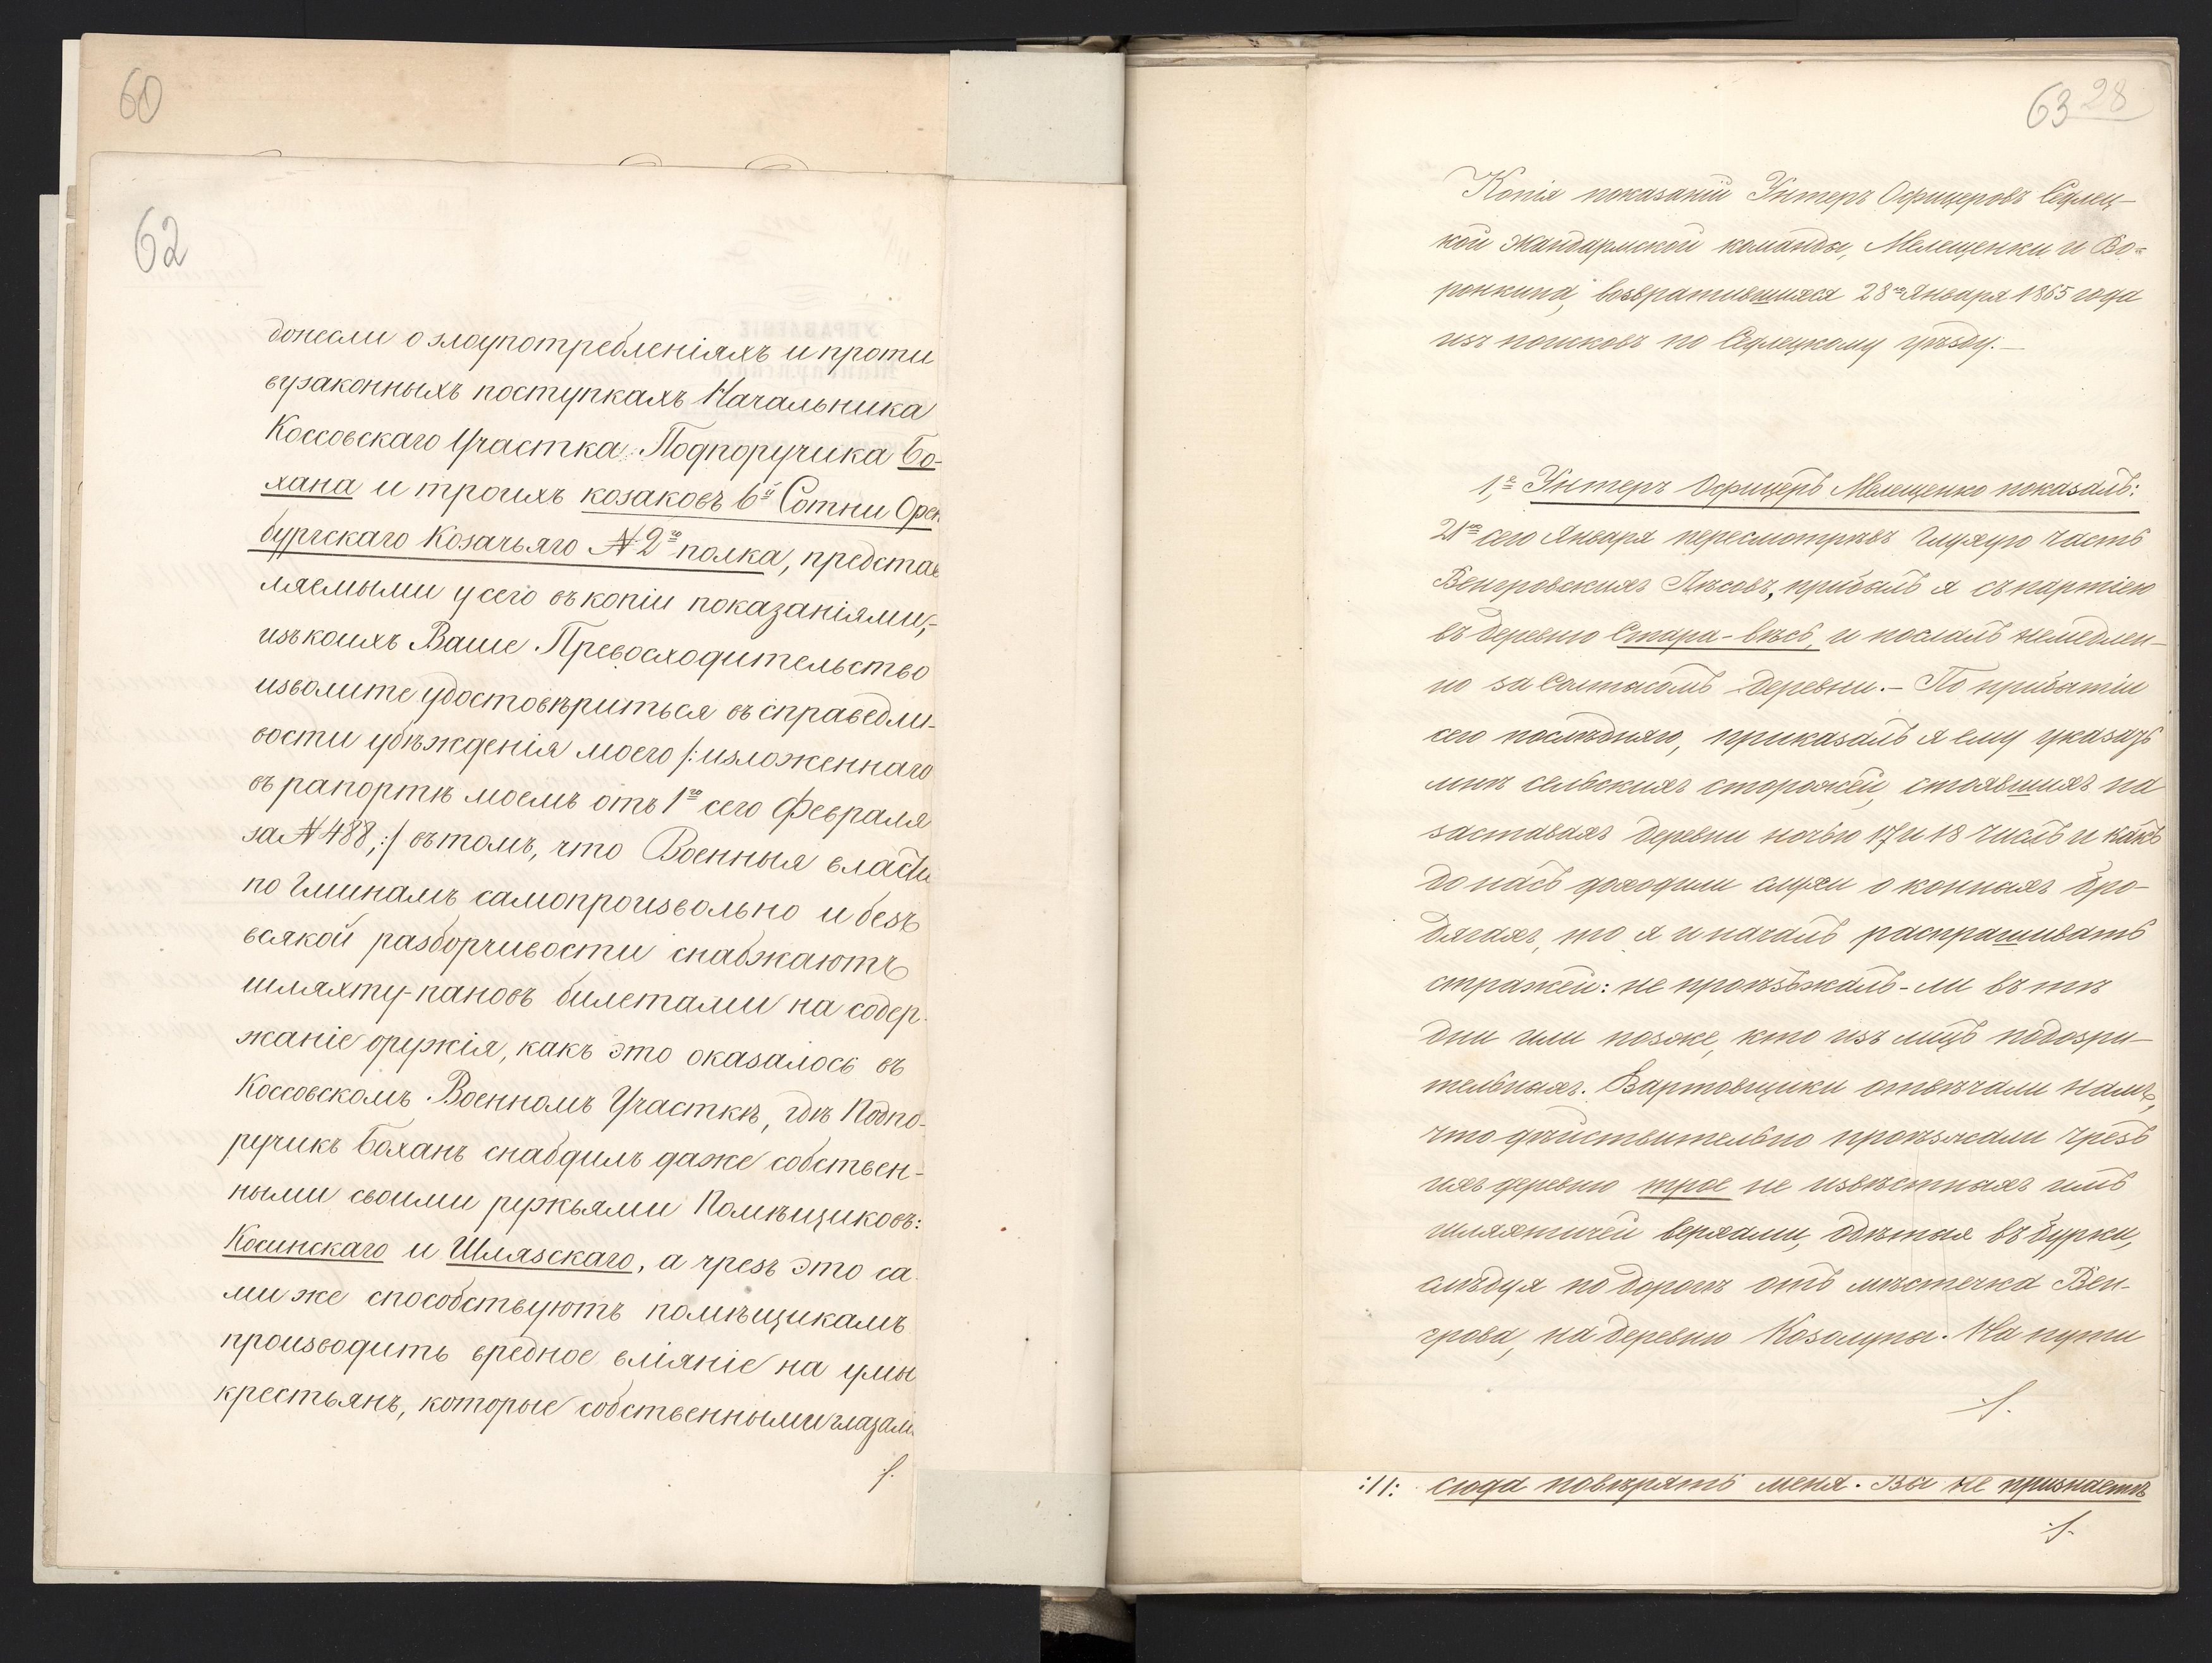 60
62
донесли о злоупотребленіяхъ и проти
вузаконныхъ поступкахъ Начальника
Коссовскаго Участка Подпоручика Бо-
хана и троихъ козаковъ 6й Сотни Орен
бургскаго Козачьяго № 2го полка, представ
ляемыми у сего въ копіи показаніями,-
изъ коихъ Ваше Превосходительство
изволите удостовѣриться въ справедли-
вости убѣжденія моего /:изложеннаго
въ рапортѣ моемъ отъ 1го сего Февраля
за № 488,:/ въ томъ, что Военныя власти
по Гминамъ самопроизвольно и безъ
всякой разборчивости снабжаютъ
шляхту-пановъ билетами на содер-
жаніе оружія, какъ это оказалось въ
Коссовскомъ Военномъ Участкѣ, гдѣ Подпо-
ручикъ Боханъ снабдилъ даже собствен-
ными своими ружьями Помѣщиковъ:
Косинскаго и Шляскаго, а чрезъ это са-
ми же способствуютъ помѣщикамъ
производить вредное вліяніе на умы
крестьянъ, которые собственными глазами
63 28
Копія показаній Унтеръ Офицеровъ Седлец-
кой жандармской команды, Мелещенки и Во-
ронкина, возвратившихся 28го Января 1865 года
изъ поисковъ по Седлецкому уѣзду.-
1,е Унтеръ Офицеръ Мелещенко показалъ:
21го сего Января пересмотрѣвъ Глухую часть
Венгровскихъ Лѣсовъ, прибылъ я съ партіею
въ деревню Стара-вѣсь, и послалъ немедлен-
но за Солтысомъ деревни.- По прибытіи
сего послѣдняго, приказалъ я ему указать
мнѣ сельскихъ сторожей, стоявшихъ на
заставахъ деревни ночью 17 и 18 числъ и какъ
до насъ доходили слухи о конныхъ бро-
дягахъ, то я и началъ распрашивать
стражей: не проѣзжалъ-ли въ тѣ
дни или позже, кто изъ лицъ подозри-
тельныхъ. Вартовщики отвѣчали намъ,
что дѣйствительно проѣзжали чрезъ
ихъ деревню трое не извѣстныхъ имъ
шляхтичей верхами, одѣтыя въ бурки,
слѣдуя по дорогѣ отъ мѣстечка Вен-
грова, на деревню Козолупы. На пути
:11: сюда повѣрять меня. Вы не признаетъ